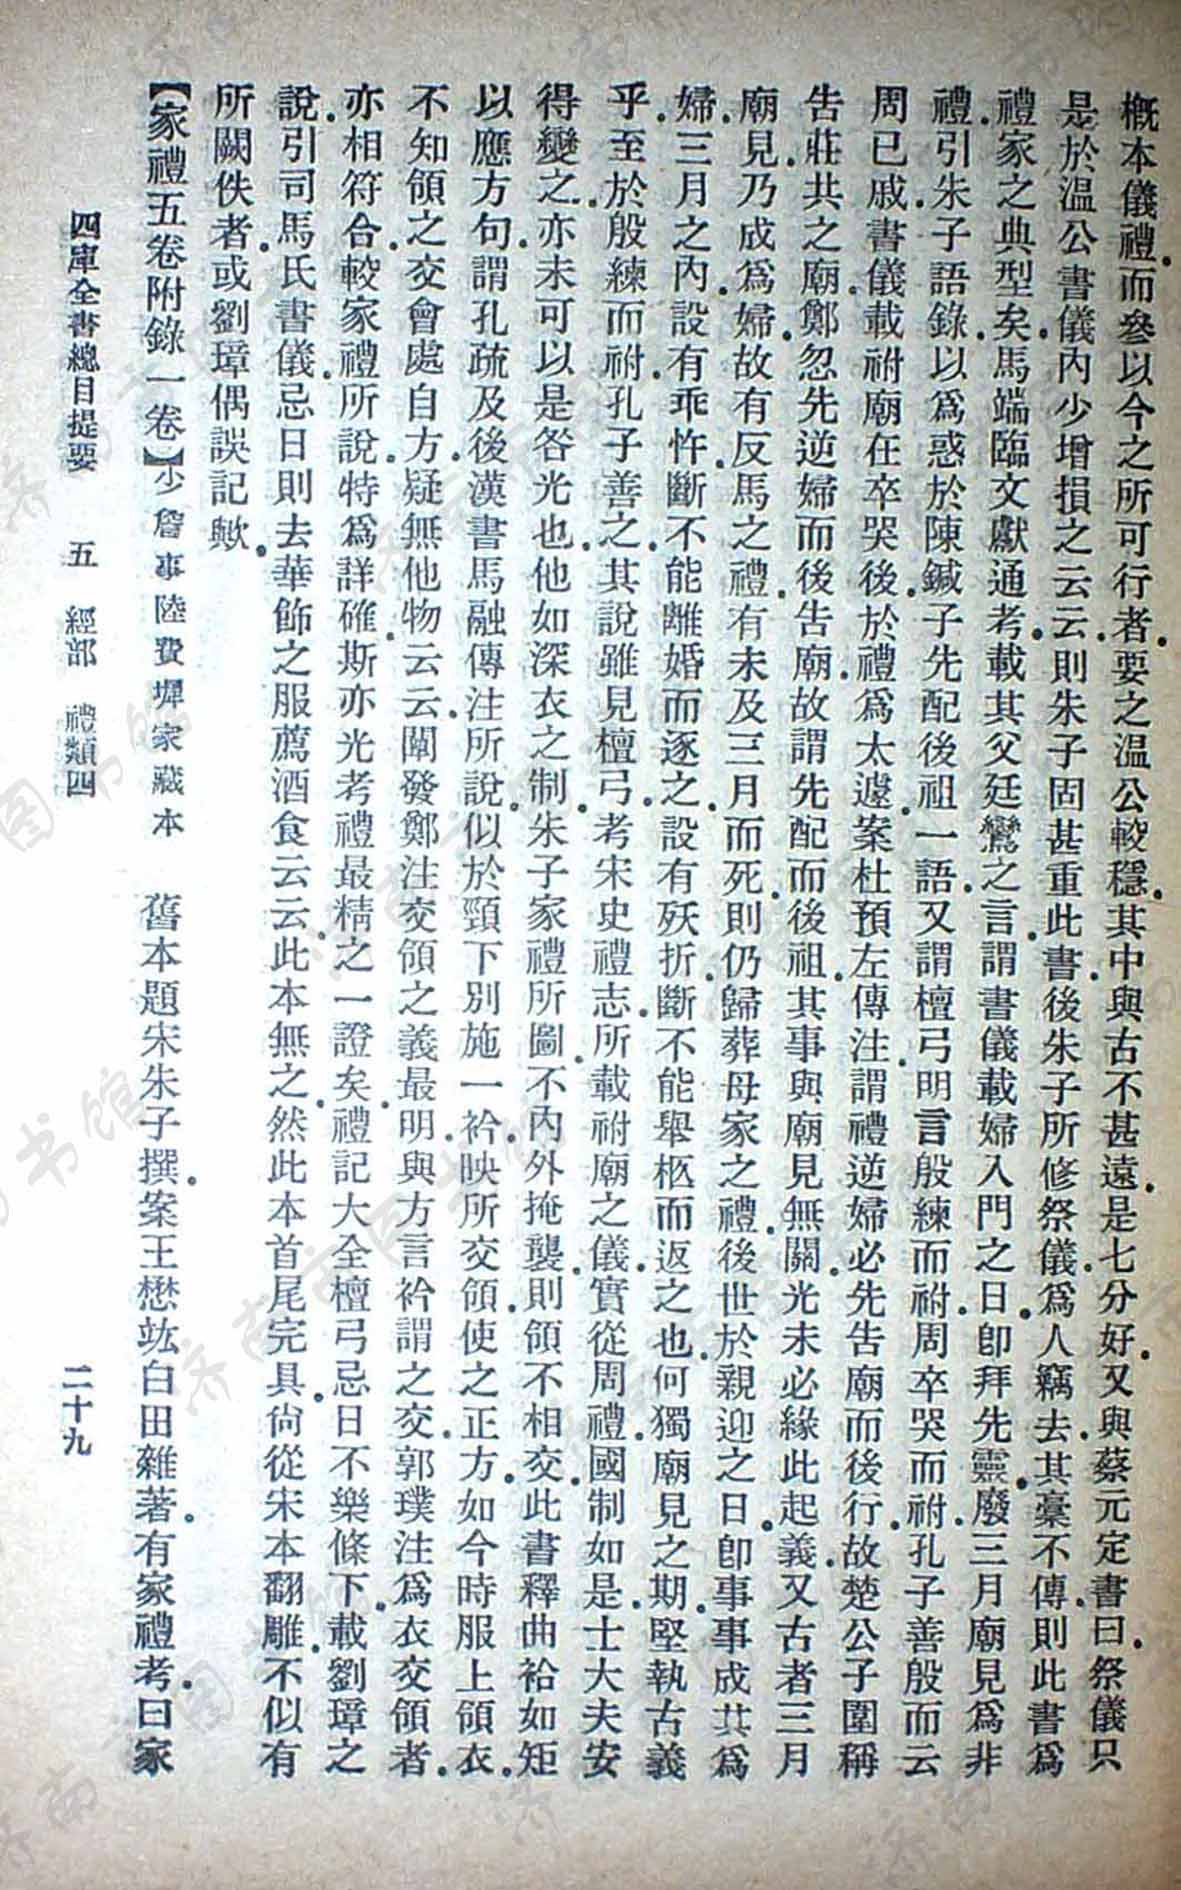 槪本儀禮而參以今之所可行者要之溫公較穩其中與古不甚遠是七分好又與蔡元定書曰祭儀只
是於溫公書儀內少增損之云云則朱子固甚重此書後朱子所修祭儀爲人竊去其稾不傳則此書爲
禮家之典型矣馬端臨文獻通考載其父廷鸞之言謂書儀載婦入門之日卽拜先靈廢三月廟見爲非
禮引朱子語錄以爲惑於陳鍼子先配後祖一語又謂檀弓明言殷練而祔周卒哭而祔孔子善殷而云
周已戚書儀載祔廟在卒哭後於禮爲太遽案杜預左傳注謂禮逆婦必先告廟而後行故楚公子圍稱
告莊共之廟鄭忽先逆婦而後告廟故謂先配而後祖其事與廟見無關光未必緣此起義又古者三月
廟見乃成爲婦故有反馬之禮有未及三月而死則仍歸葬母家之禮後世於親迎之日卽事事成其爲
婦三月之內設有乖忤斷不能離婚而逐之設有殀折斷不能舉柩而返之也何獨廟見之期堅執古義
乎至於殷練而祔孔子善之其說雖見檀弓考宋史禮志所載祔廟之儀實從周禮國制如是士大夫安
得變之亦未可以是咎光也他如深衣之制朱子家禮所圖不內外掩襲則領不相交此書釋曲袷如矩
以應方句謂孔疏及後漢書馬融傳注所說似於頸下別施一衿映所交領使之正方如今時服上領衣
不知領之交會處自方疑無他物云云闡發鄭注交領之義最明與方言衿謂之交郭璞注爲衣交領者
亦相符合較家禮所說特爲詳確斯亦光考禮最精之一證矣禮記大全檀弓忌日不樂條下載劉璋之
說引司馬氏書儀忌日則去華飾之服薦酒食云云此本無之然此本首尾完具尙從宋本翻雕不似有
所闕佚者或劉璋偶誤記歟
【家禮五卷附錄一卷】少詹事陸費墀家藏本 舊本題宋朱子撰案王懋竑白田雜著有家禮考曰家
四庫全書總目提要 五 經部 禮類四 二十九